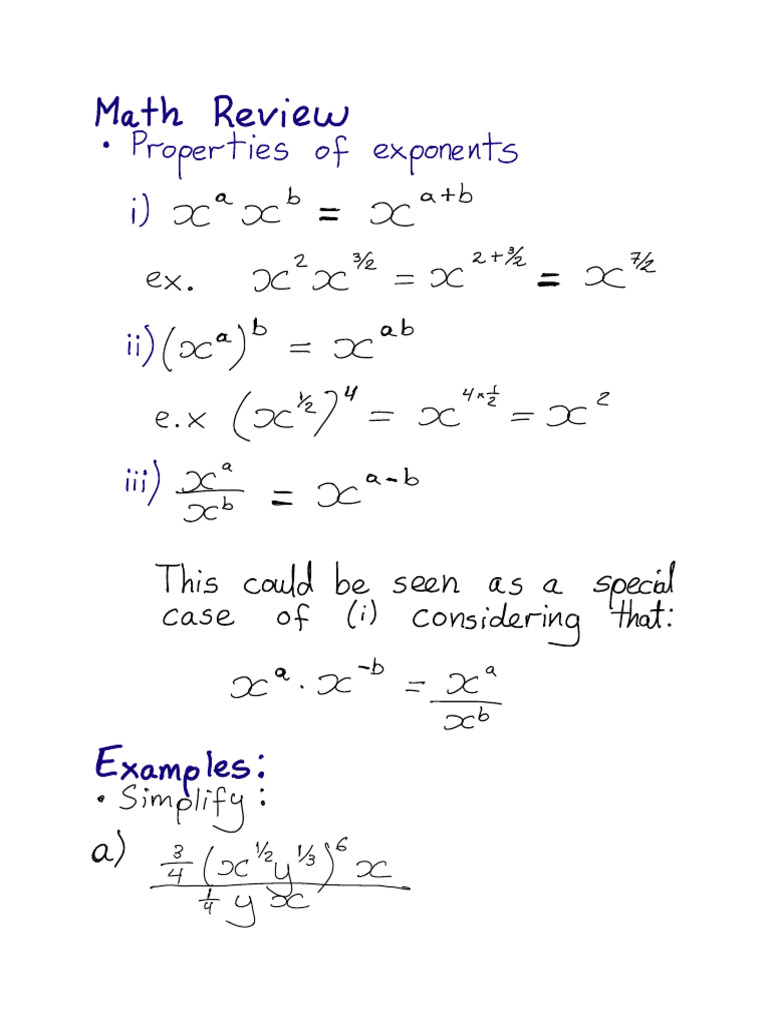 Math Review
• Properties of exponents
i) x^a x^b = x^(a+b)
ex. x^2 x^(3/2) = x^(2+3/2) = x^(7/2)
ii) (x^a)^b = x^(ab)
e.x (x^(1/2))^4 = x^(4×1/2) = x^2
iii) x^a/x^b = x^(a-b)
This could be seen as a special
case of (i) considering that:
x^a · x^(-b) = x^a/x^b
Examples:
• Simplify:
a) (3/4 (x^(1/2) y^(1/3))^6 x)/(1/4 y x)